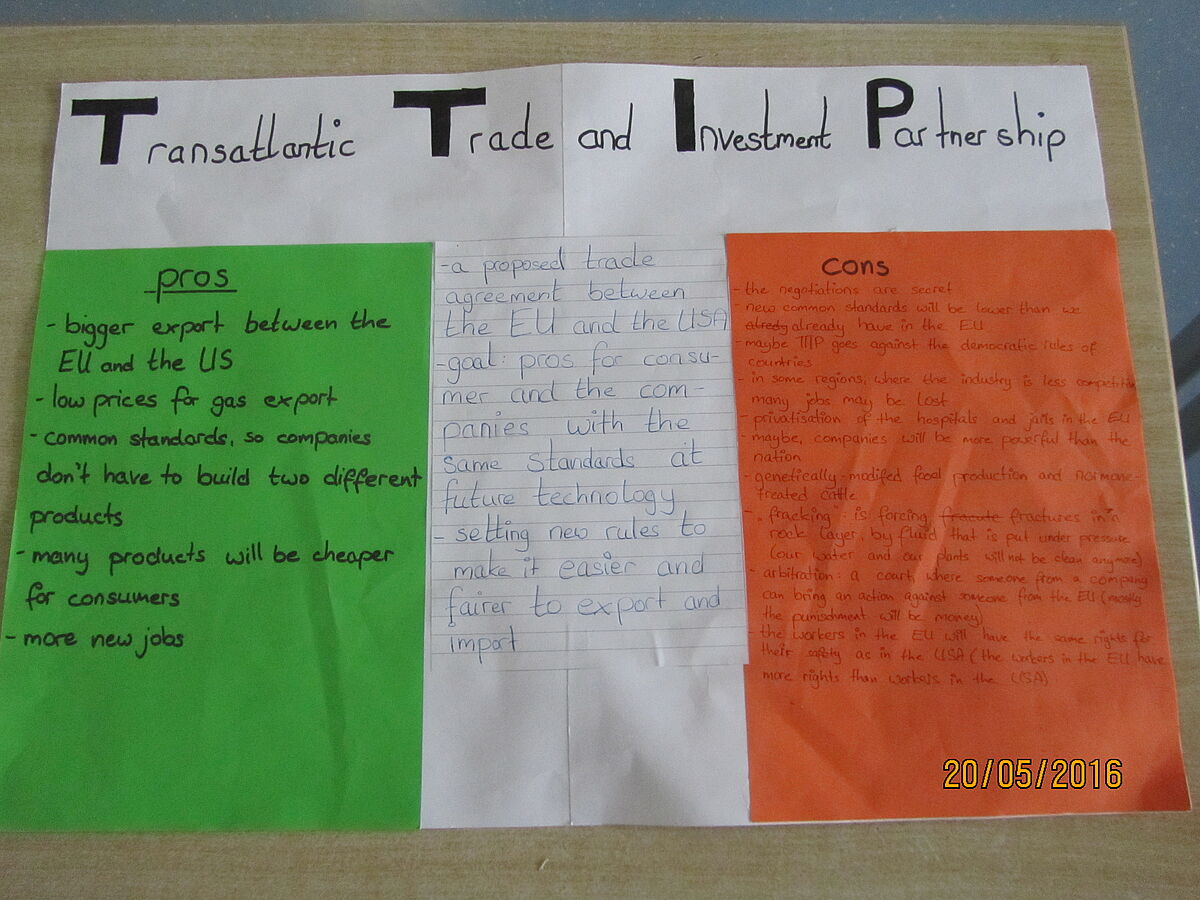 Transatlantic Trade and Investment Partnership
pros
- bigger export between the
EU and the US
- low prices for gas export
- common standards, so companies
don't have to build two different
products
- many products will be cheaper
for consumers
- more new jobs
- a proposed trade
agreement between
the EU and the USA
- goal: pros for consu-
mer and the com-
panies with the
same standards at
future technology
- setting new rules to
make it easier and
fairer to export and
import
cons
- the negotiations are secret
- new common standards will be lower than we
alredy already have in the EU
- maybe TTIP goes against the democratic rules of
countries
- in some regions, where the industry is less competitiv
many jobs may be lost
- privatisation of the hospitals and jails in the EU
- maybe, companies will be more powerful than the
nation
- genetically-modifed food production and hormone-
treated cattle
- "fracking": is forcing fractures in
rock layer, by fluid that is put under pressure
(our water and our plants will not be clean anymore)
- arbitration: a court, where someone from a company
can bring an action against someone from the EU (mostly
the punishment will be money)
- the workers in the EU will have the same rights for
their safety as in the USA (the workers in the EU have
more rights than workers in the USA)
20/05/2016